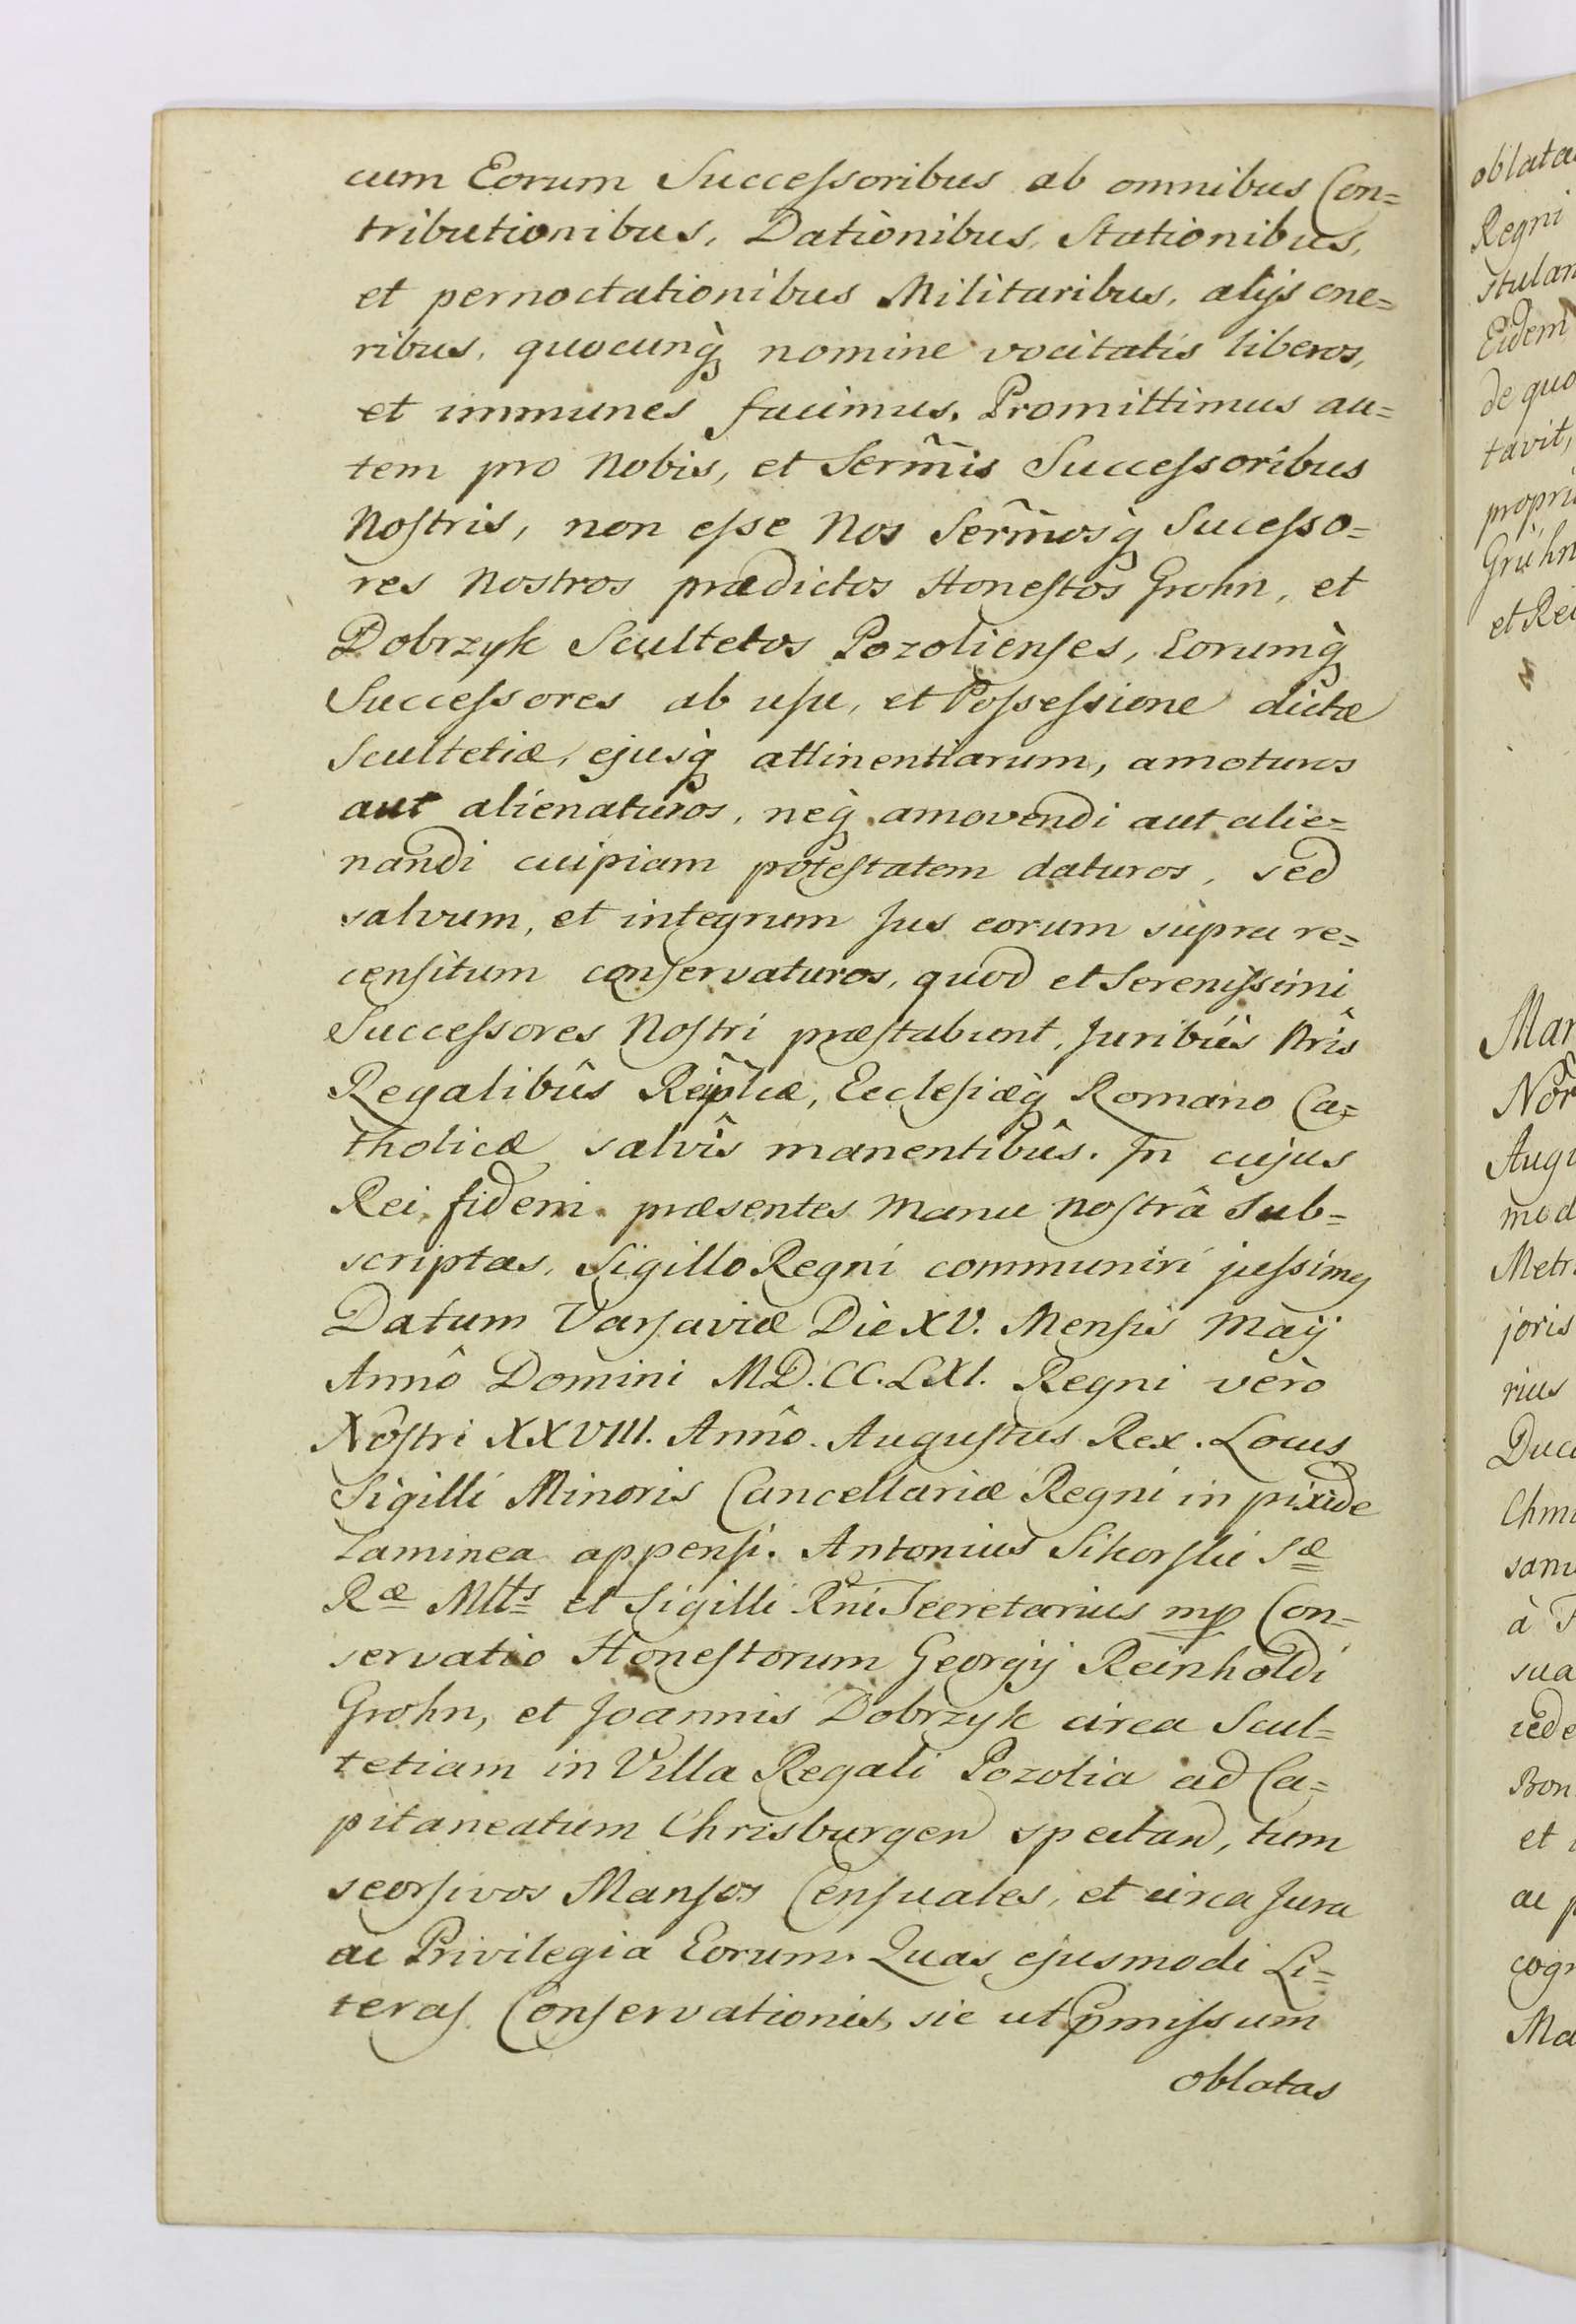 cum Eorum Succeſsoribus ab omnibus Con=
tributionibus, Dationibus, Stationibus,
et pernoctationibus Militaribus, alijs one=
ribus, quocunq̀ nomine vocitatis liberos,
et immunes facimus. Promittimus au=
tem pro Nobis, et Serm̃is Succeſsoribus
Noſtris, non eſse Nos Serm̃osq̀ Suceſso=
res Nostros prædictos Honeſtos Grohn, et
Dobrzyk Scultetos Pozolienſes, Eorumq̀
Succeſsores ab uſu, et Poſseſsione dictæ
Scultetiæ, ejusq̀ attinentiarum, amoturos
aut alienaturos, neq̀ amovendi aut alie=
nandi cuipiam poteſtatem daturos, sed
salvum, et integrum Jus eorum supra re=
cenſitum conſervaturos, quod et Sereniſsimi
Succeſsores Noſtri præſtabunt, Juribûs Nrîs
Regalibûs Reip̃licæ, Eccleſiæq̀ Romano Ca=
tholicæ salvîs manentibûs. In cujus
Rei fidem præsentes Manu noſtrâ Sub=
scriptas, Sigillo Regni communiri juſsimꝰ
Datum Varſaviæ Die XV. Menſis Maÿ
Annô Domini MD.CC.LXI. Regni verò
Nôſtri XXVIII. Annô. Auguſtus Rex. Locus
Sigilli Minoris Cancellariæ Regni in pixide
Laminea appenſi. Antonius Sikorſki Sæ
Ræ Mtts et Sigilli Rñi Secretarius mp Con=
servatio Honeſtorum Georgij Reinholdi
Grohn, et Joannis Dobrzyk circa Scul=
tetiam in Villa Regali Pozolia ad Ca=
pitaneatum Chrisburgen spectan, tum
seorſivos Manſos Cenſuales, et circa Jura
ac Privilegia Eorum. Quas ejusmodi Li=
teraſ Conſervationis, sic ut p̃miſsum
oblatas
oblata
Regni
stulan
Eidem
de quo
tavit,
propri
Grühn
et Rei
Mar
Nôr
Augu
mod
Metr
joris
rius
Duc
Chm
sam
à
sua
cede
Bon
et
ac p
cogn
Ma